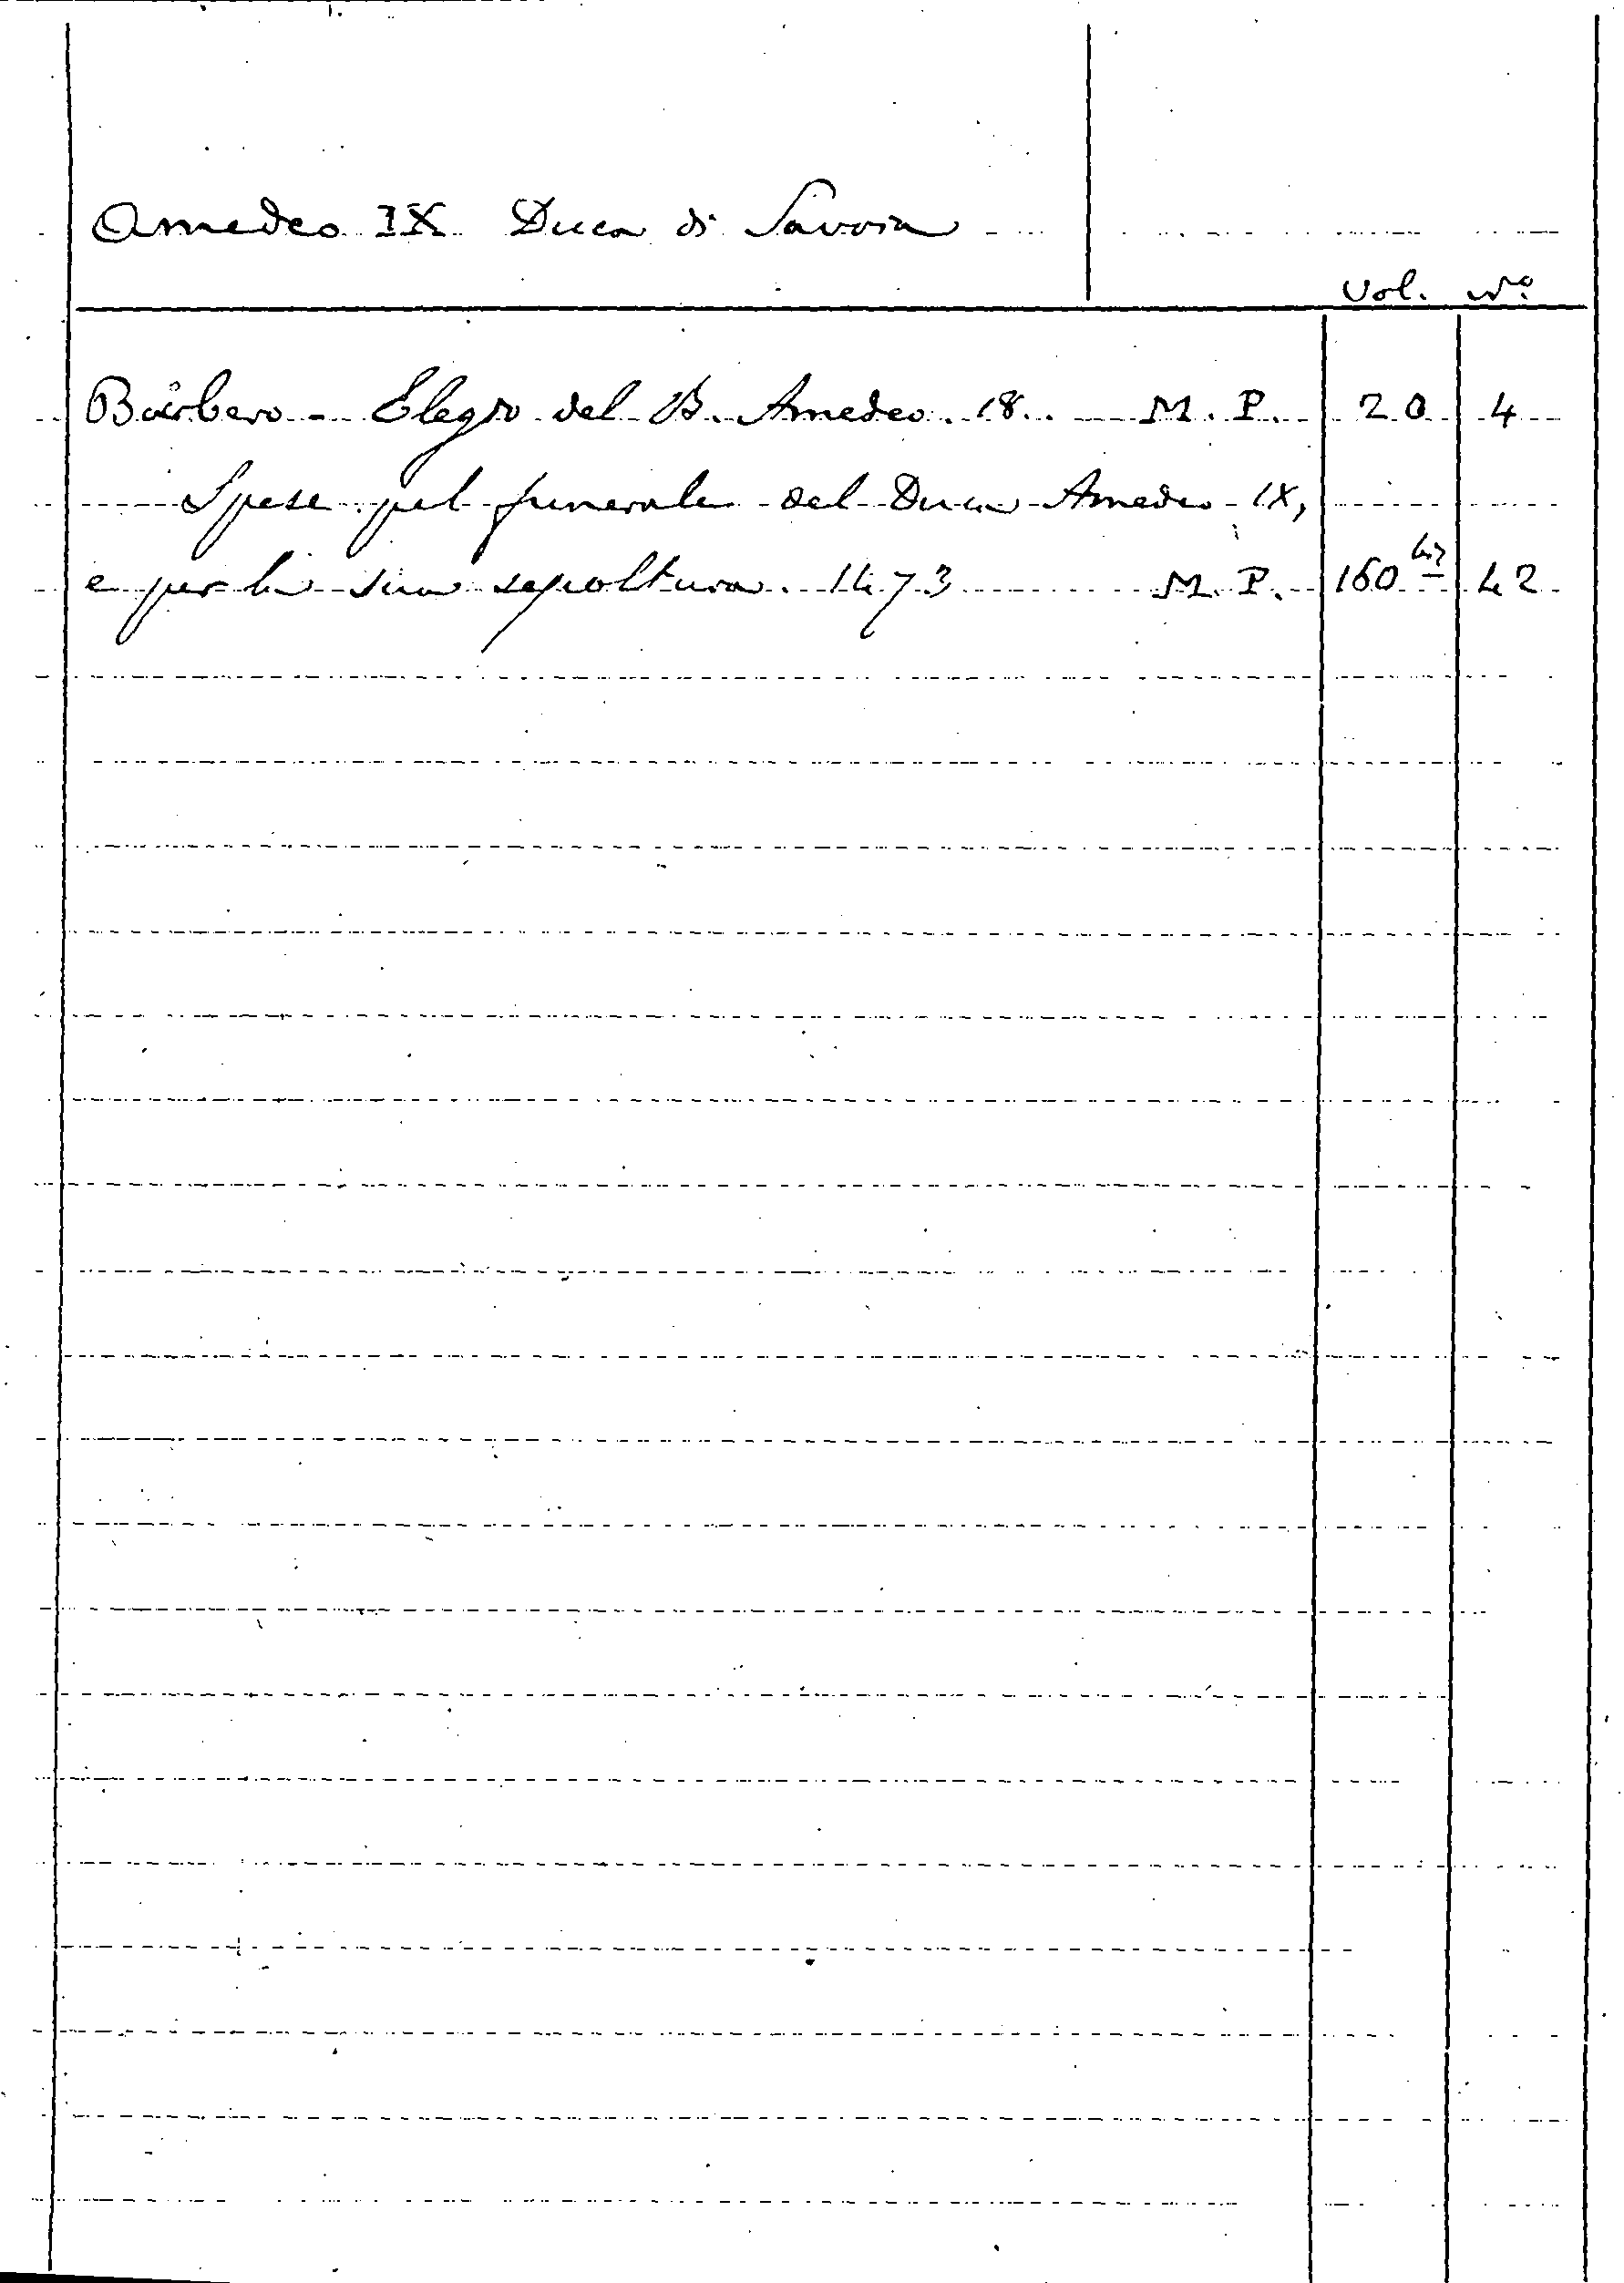 Amedeo IX Duca di Savoia
Vol. Nº
Barbero - Elogio del B. Amedeo. 18.. M. P. 20 4
Spese pel funerale del Duca Amedeo IX,
e per la sua sepoltura. 1473 M. P. 160 bis 42